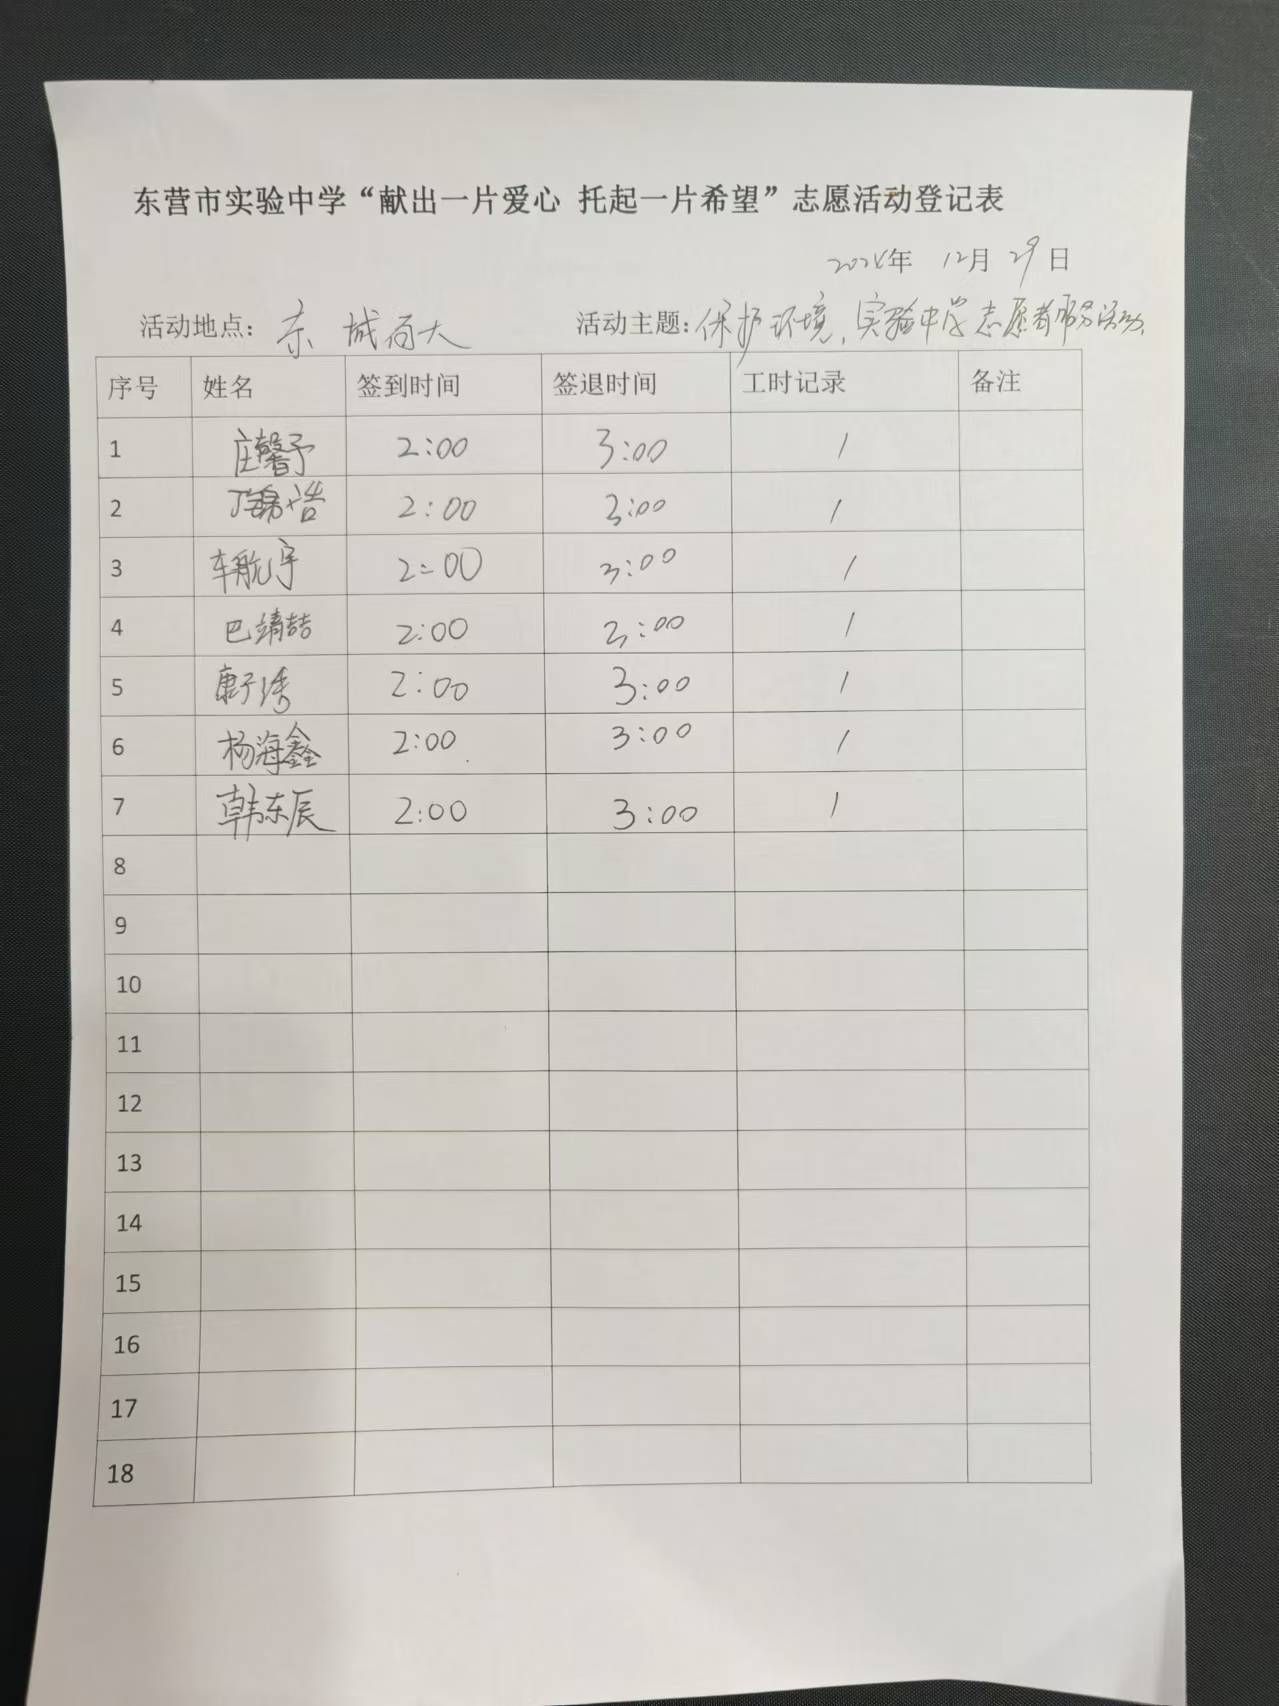 东营市实验中学“献出一片爱心 托起一片希望”志愿活动登记表
2024年 12月 29日
活动地点: 东城百大 活动主题: 保护环境,实验中学志愿者服务活动.
序号 姓名 签到时间 签退时间 工时记录 备注
1 庄馨予 2:00 3:00 1
2 丁锦浩 2:00 3:00 1
3 车航宇 2:00 3:00 1
4 巴靖喆 2:00 3:00 1
5 康子琇 2:00 3:00 1
6 杨海鑫 2:00 3:00 1
7 韩东辰 2:00 3:00 1
8
9
10
11
12
13
14
15
16
17
18